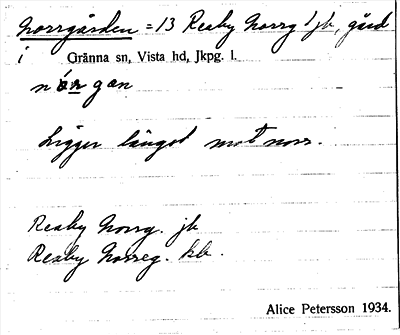 Norrgården = 13 Reaby Norrg. jb, gård
i Gränna sn, Vista hd, Jkpg. l.
nórgan
Ligger längst mot norr.
Reaby Norrg. jb
Reaby Norreg. kb.
Alice Petersson 1934.